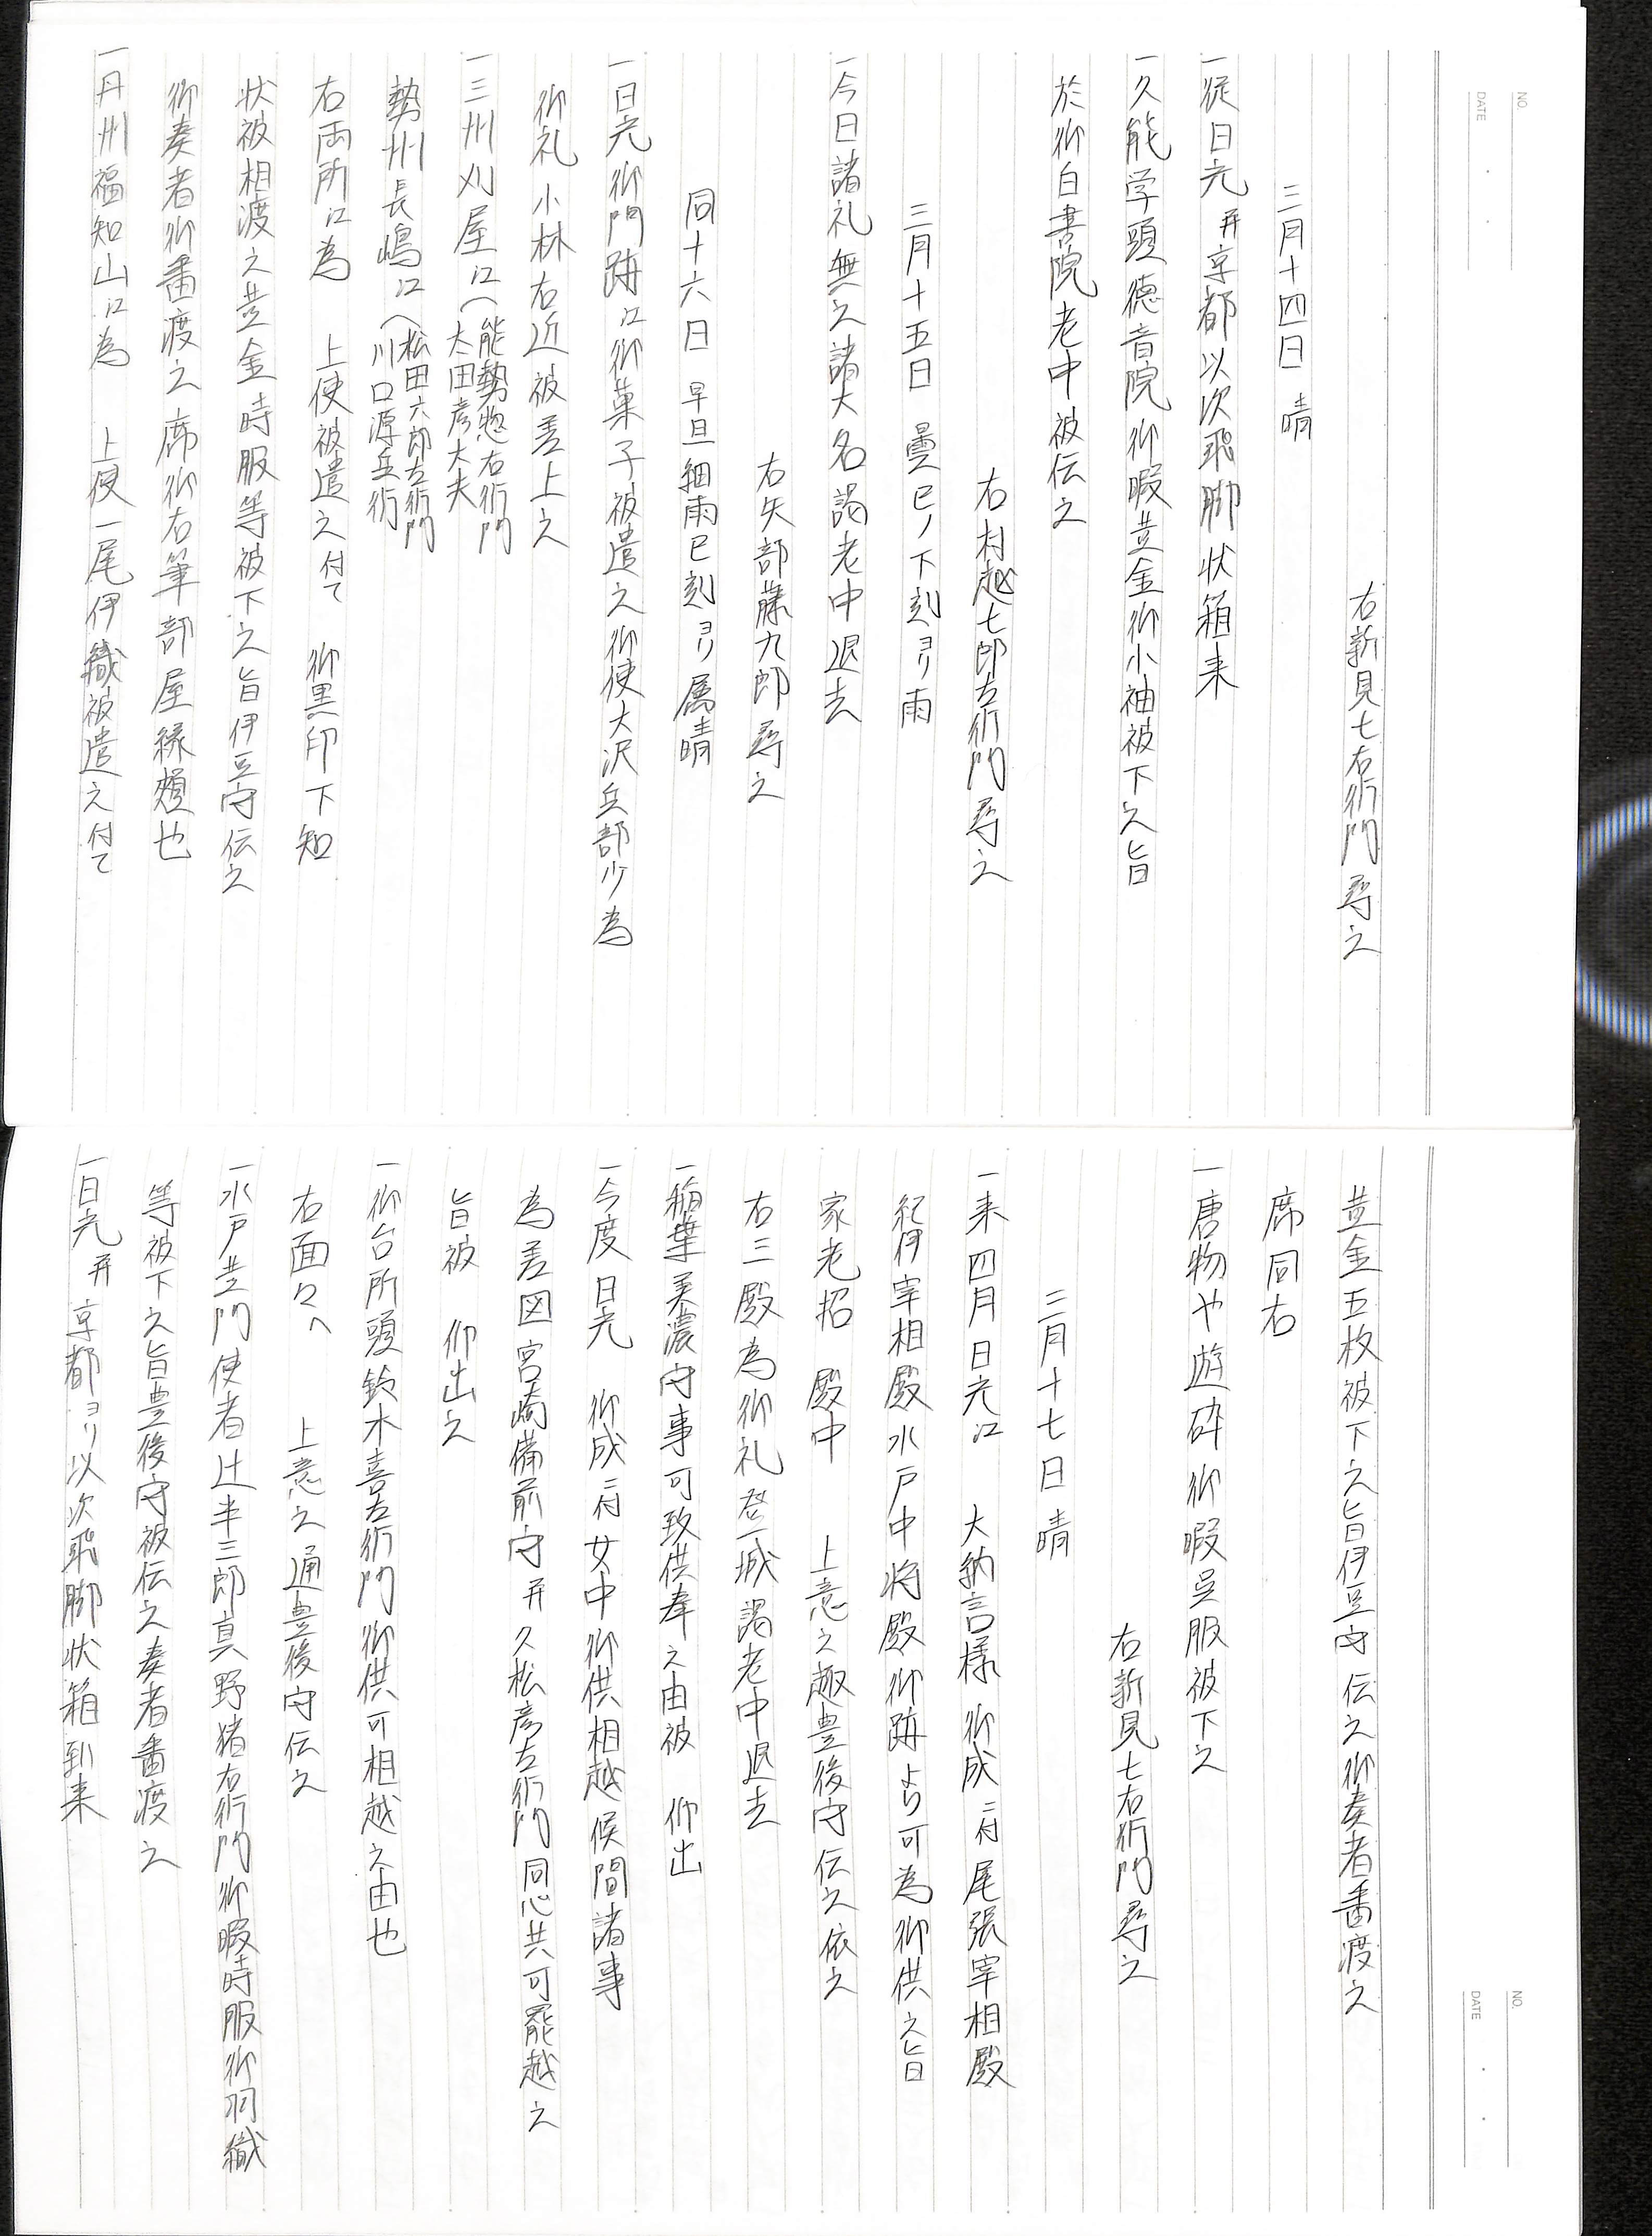 NO.
DATE
右新見七右衛門尋之
三月十四日 晴
一従日光并京都以次飛脚状箱来
一久能学頭徳音院御暇並金御小袖被下之旨
於御白書院老中被伝之
右村越七郎左衛門尋之
三月十五日 曇巳ノ下刻ヨリ雨
一今日諸礼無之諸大名謁老中退去
右矢部藤九郎尋之
同十六日 早旦細雨巳刻ヨリ属晴
一日光御門跡江御菓子被遣之御使大沢兵部少為
御礼小林右近被差上之
一三州刈屋江〈能勢惣右衛門 太田彦大夫
勢州長嶋江〈松田六郎左衛門 川口源兵衛
右両所江為 上使被遣之付て 御黒印下知
状被相渡之並金時服等被下之旨伊豆守伝之
御奏者御番渡之席御右筆部屋縁頬也
一丹州福知山江為 上使一尾伊織被遣之付て
NO.
DATE
並金五枚被下之旨伊豆守伝之御奏者番渡之
席同右
一唐物や遊砕御暇呉服被下之
右新見七右衛門尋之
三月十七日 晴
一来四月日光江 大納言様御成ニ付尾張宰相殿
紀伊宰相殿水戸中将殿御跡より可為御供之旨
家老招 殿中 上意之趣豊後守伝之依之
右三殿為御礼登城謁老中退去
一稲葉美濃守事可致供奉之由被 仰出
一今度日光 御成ニ付女中御供相越候間諸事
為差図宮崎備前守并久松彦左衛門同心共可罷越之
旨被 仰出之
一御台所頭鈴木喜左衛門御供可相越之由也
右面々へ 上意之通豊後守伝之
一水戸並門使者辻半三郎真野猪右衛門御暇時服御羽織
等被下之旨豊後守被伝之奏者番渡之
一日光并京都ヨリ以次飛脚状箱到来